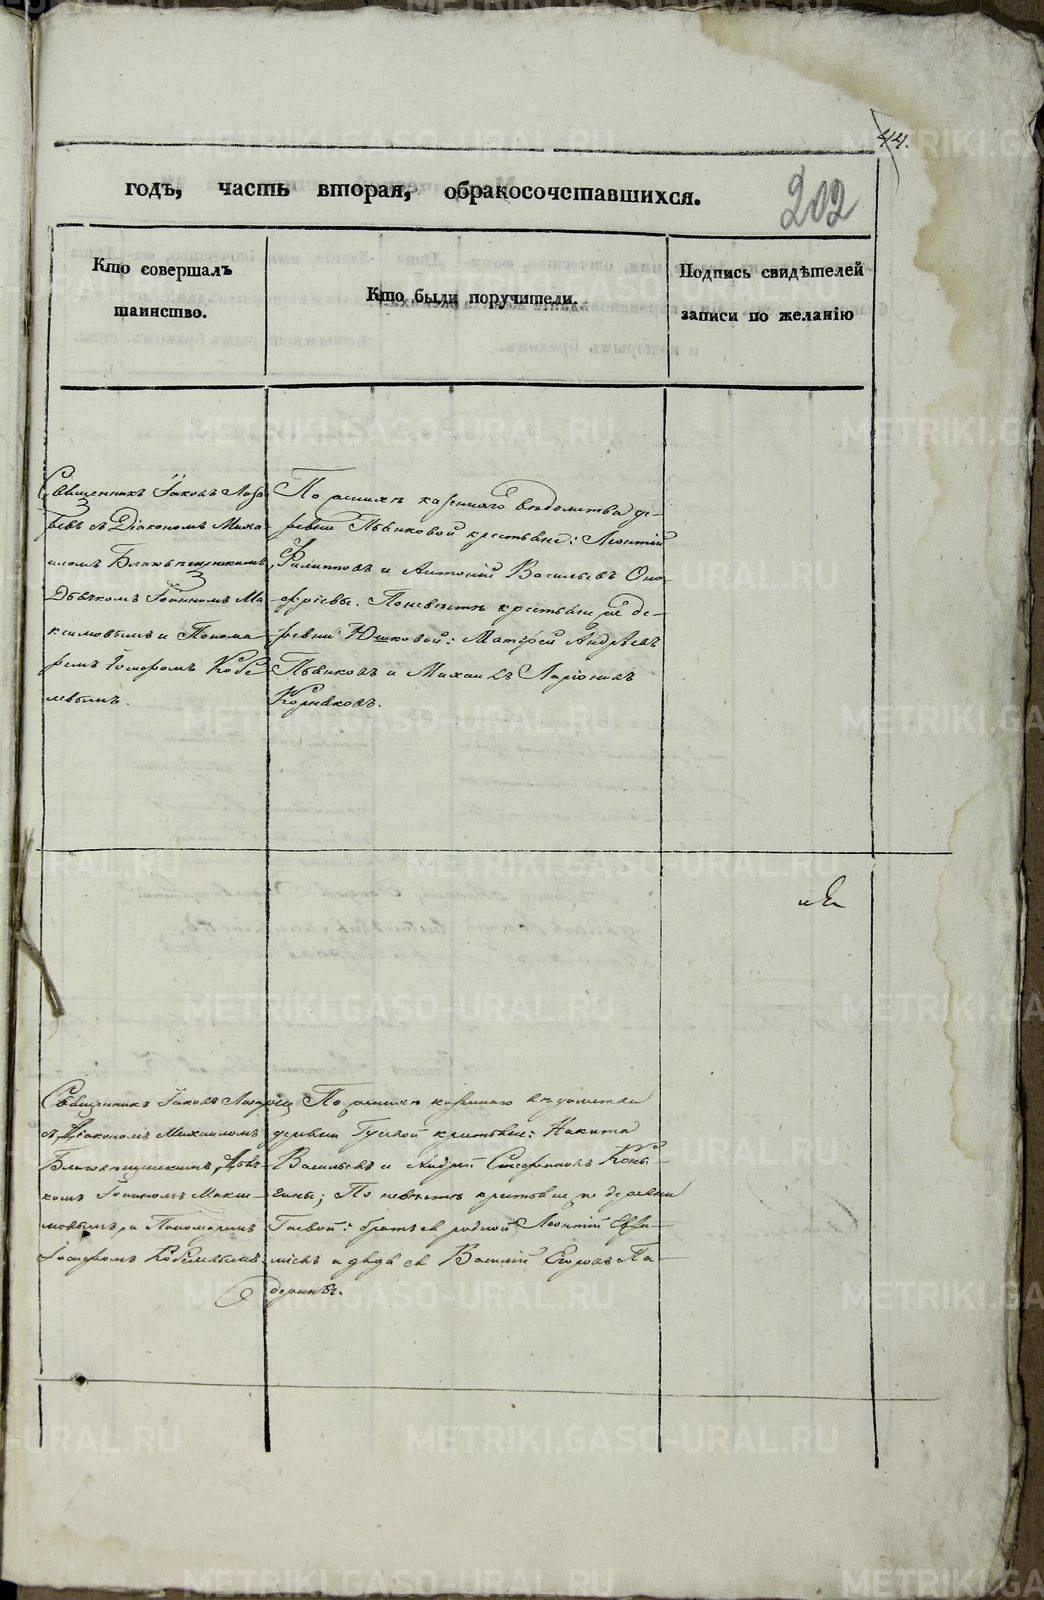 44.
годъ, часть вторая, обракосочетавшихся.
202
Кто совершалъ таинство.
Кто были поручители.
Подпись свидѣтелей записи по желанію
Священникъ Іаковъ Лаза-
ревъ съ Діакономъ Миха-
иломъ Благовѣщенскимъ,
Дьячкомъ Іоанномъ Ма
ксимовымъ и Понома-
ремъ Іосифомъ Кобе
левымъ.
По женихѣ казеннаго вѣдомства де-
ревни Пьянковой крестьяне: Леонтій
Филипповъ и Антоній Васильевъ Оно-
фріевы. По невѣстѣ крестьяне
ревни Юшковой: Матфей Андреевъ
Пьянковъ и Михаилъ Ларіоновъ
Корняковъ.
Священникъ Іаковъ Лазаревъ
съ Діакономъ Михаиломъ
Благовѣщенскимъ, Дьяч-
комъ Іоанномъ Макси-
мовымъ, и Пономаремъ
Іосифомъ Кобелевымъ
По женихѣ казеннаго вѣдомства
деревни Гусевой крестьяне: Никита
Васильевъ и Андрей Стефановъ Коны-
гины; По невѣстѣ крестьяне деревни
братъ ея родной Леонтій
и дядя ея Василій Егоровъ Па-
деринъ.
METRIKI.GASO-URAL.RU